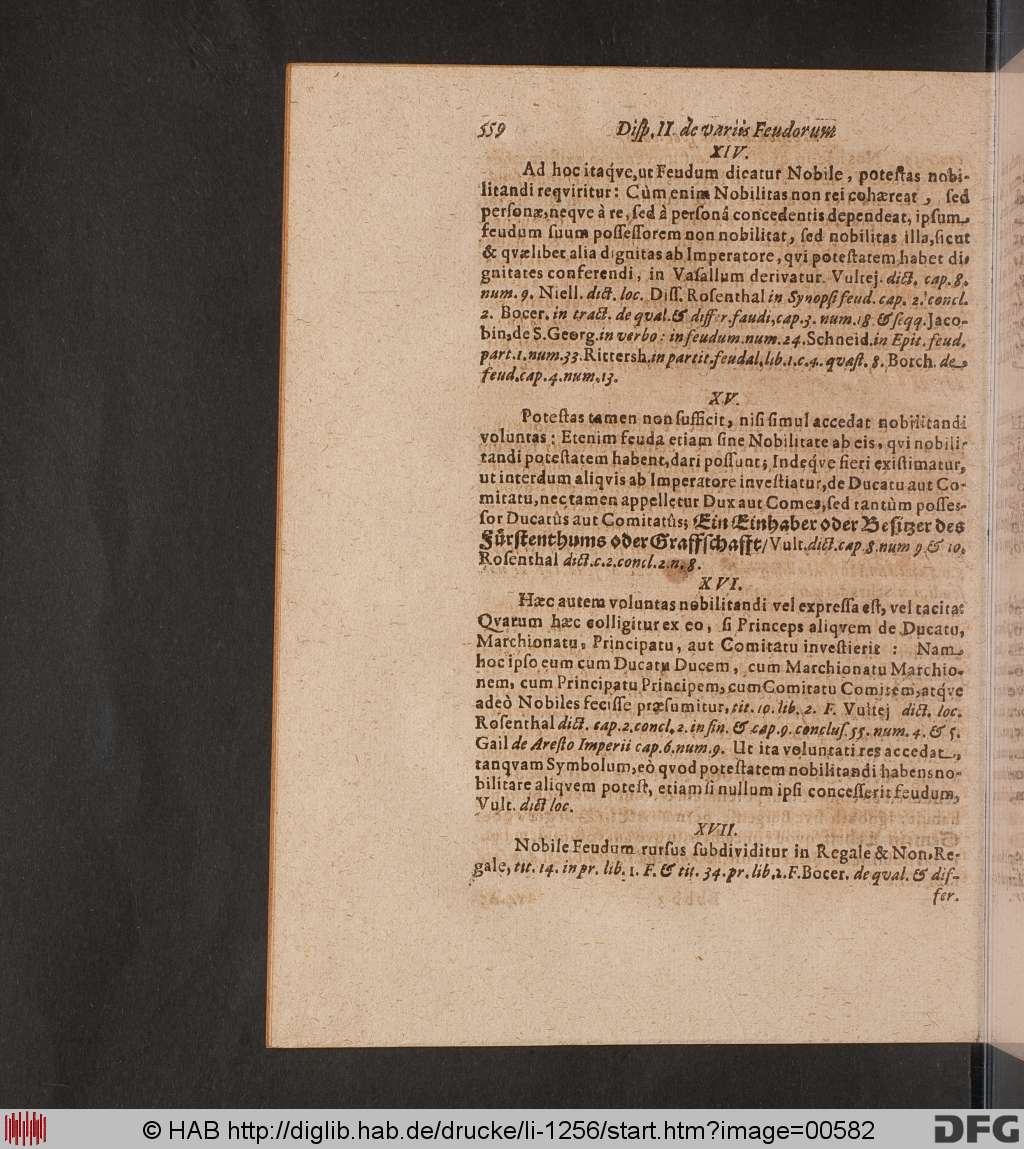 559 Diſp. II. de variis Feudorum
XIV.
Ad hoc itaq́ve, ut Feudum dicatur Nobile, poteſtas nobi-
litandi reqviritur: Cùm enim Nobilitas non rei cohæreat, ſed
perſonæ, neqve à re, ſed à perſonâ concedentis dependeat, ipſum
feudum ſuum poſſeſſorem non nobilitat, ſed nobilitas illa, ſicut
& qvælibet alia dignitas ab Imperatore, qvi poteſtatem habet di-
gnitates conferendi, in Vaſallum derivatur. Vultej. dict. cap. 8.
num. 9. Niell. dict. loc. Diſſ. Roſenthal in Synopſi feud. cap. 2. concl.
2. Bocer. in tract. de qval. & differ. faudi, cap. 3. num. 18. & ſeqq. Jaco-
bin, de S. Georg. in verbo: in feudum num. 24. Schneid. in Epit. feud.
part. 1. num. 33. Rittersh. in partit. feudal. lib. 1. c. 4. qvæſt. 8. Borch. de
feud. cap. 4. num. 13.
XV.
Poteſtas tamen non ſufficit, niſi ſimul accedat nobilitandi
voluntas: Etenim feuda etiam ſine Nobilitate ab eis, qvi nobili-
tandi poteſtatem habent, dari poſſunt; Indeq́ve fieri exiſtimatur,
ut interdum aliqvis ab Imperatore inveſtiatur, de Ducatu aut Co-
mitatu, nec tamen appelletur Dux aut Comes, ſed tantùm poſſeſ-
ſor Ducatûs aut Comitatûs; Ein Einhaber oder Beſitzer des
Fürſtenthums oder Graffſchafft/ Vult. dict. cap. 8. num 9. & 10.
Roſenthal dict. c. 2. concl. 2. n. 8.
XVI.
Hæc autem voluntas nobilitandi vel expreſſa eſt, vel tacita:
Qvarum hæc colligitur ex eo, ſi Princeps aliqvem de Ducatu,
Marchionatu, Principatu, aut Comitatu inveſtierit: Nam
hoc ipſo eum cum Ducatu Ducem, cum Marchionatu Marchio-
nem, cum Principatu Principem, cum Comitatu Comitem, atq́ve
adeò Nobiles feciſſe præſumitur, tit. 10. lib. 2. F. Vultej dict. loc.
Roſenthal dict. cap. 2. concl. 2. in fin. & cap. 9. concluſ. 55. num. 4. & 5.
Gail de Areſto Imperii cap. 6. num. 9. Ut ita voluntati res accedat,
tanqvam Symbolum, eò qvod poteſtatem nobilitandi habens no-
bilitare aliqvem poteſt, etiam ſi nullum ipſi conceſſerit feudum,
Vult. dict loc.
XVII.
Nobile Feudum rurſus ſubdividitur in Regale & Non-Re-
gale, tit. 14. in pr. lib. 1. F. & tit. 34. pr. lib. 2. F. Bocer. de qval. & dif-
fer.
© HAB http://diglib.hab.de/drucke/li-1256/start.htm?image=00582
DFG